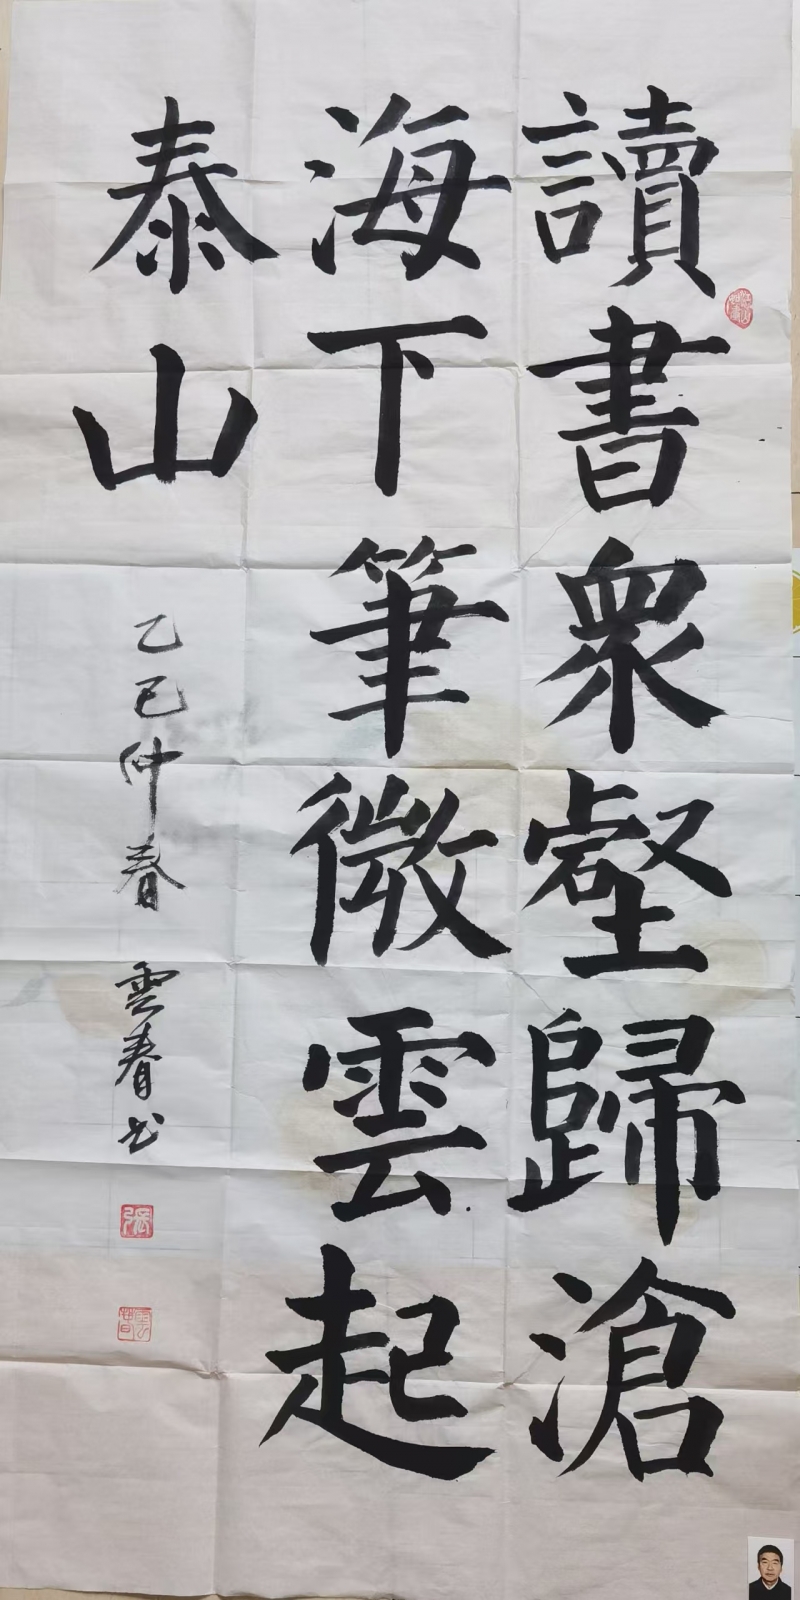 讀書衆壑歸滄
海下筆微雲起
泰山
乙巳仲春 雲春书
張
雲春